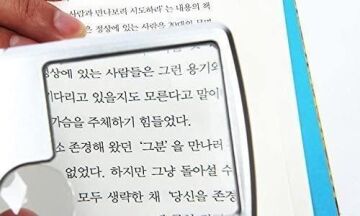 사람과 만나보리 시도하라'는 내용의 책
정상에 있는 사람을 20대의 무명
상에 있는 사람들은 그런 용기와
기다리고 있을지도 모른다고 말이
가슴을 주체하기 힘들었다.
소 존경해 왔던 '그분'을 만나러
없었다. 하지만 그냥 돌아설 수
모두 생략한 채 '당신을 존경